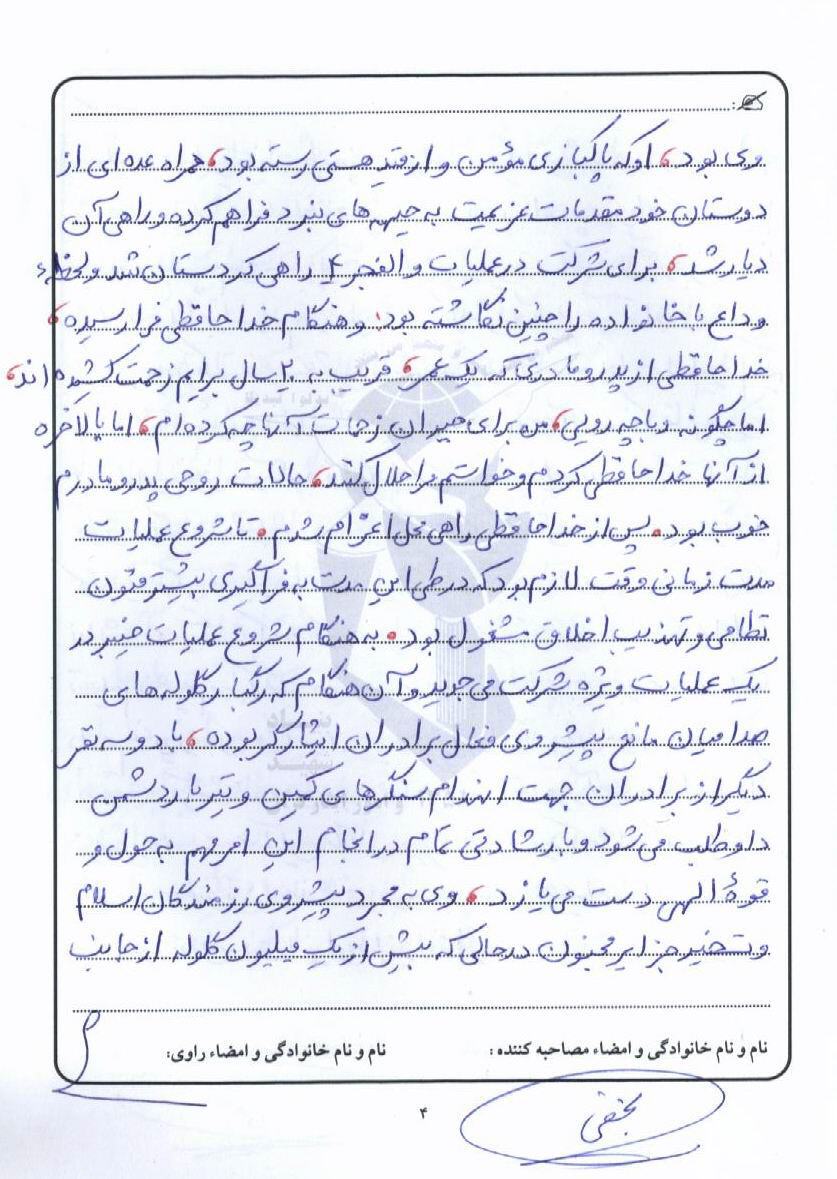 وی بود، او که پاکبازی مؤمن و از قید هستی رسته بود، همراه عده‌ای از
دوستان خود مقدمات عزیمت به جبهه‌های نبرد فراهم کرده و راهی آن
دیار شد، برای شرکت در عملیات والفجر ۴ راهی کردستان شد و لحظهٔ
وداع با خانواده را چنین نگاشته بود: وهنگام خداحافظی فرا رسیده،
خداحافظی از پدر و مادری که یک عمر، قریب به ۲۰ سال برایم زحمت کشیده‌اند،
اما چگونه و با چه رویی، من برای جبران زحمات آنها چه کرده‌ام، اما بالاخره
از آنها خداحافظی کردم و خواستم مرا حلال کنند، حالات روحی پدر و مادرم
خوب بود. پس از خداحافظی راهی محل اعزام شدم. تا شروع عملیات
مدت زمانی وقت لازم بود که در طی این مدت به فراگیری بیشتر فنون
نظامی و تهذیب اخلاق مشغول بود. به هنگام شروع عملیات خیبر در
یک عملیات ویژه شرکت می‌جوید و آن هنگام که رگبار گلوله‌های
صدامیان مانع پیشروی فعال برادران ایثارگر بوده، با دو سه نفر
دیگر از برادران جهت انهدام سنگرهای کمین و تیربار دشمن
داوطلب می‌شود و با رشادتی تمام در انجام این امر مهم به حول و
قوهٔ الهی دست می‌یازد، وی به مجرد پیشروی رزمندگان اسلام
و تسخیر جزایر مجنون در حالی که بیش از یک میلیون گلوله از جانب
نام و نام خانوادگی و امضاء مصاحبه کننده: نام و نام خانوادگی و امضاء راوی:
۴